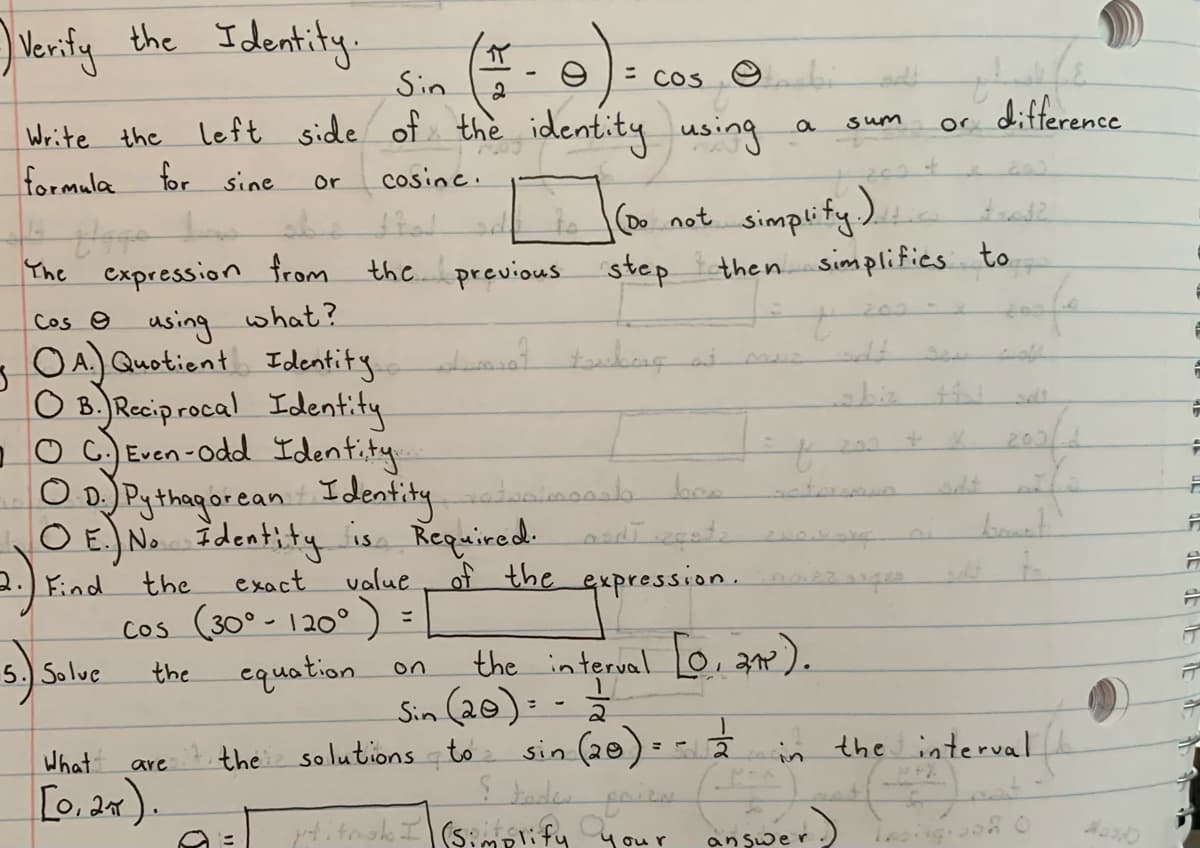 ) Verify the Identity.
Sin (π/2 - θ) = cos θ
Write the left side of the identity using a sum or difference
formula for sine or cosine.
(Do not simplify.)
The expression from the previous step then simplifies to
cos θ using what?
O A.) Quotient Identity
O B.) Reciprocal Identity
O C.) Even-odd Identity
O D.) Pythagorean Identity
O E.) No Identity is Required.
2.) Find the exact value of the expression.
cos (30° - 120°) =
5.) Solve the equation on the interval [0, 2π).
Sin (2θ) = - 1/2
What are the solutions to sin (2θ) = - 1/2 in the interval
[0, 2π).
θ = (Simplify your answer.)